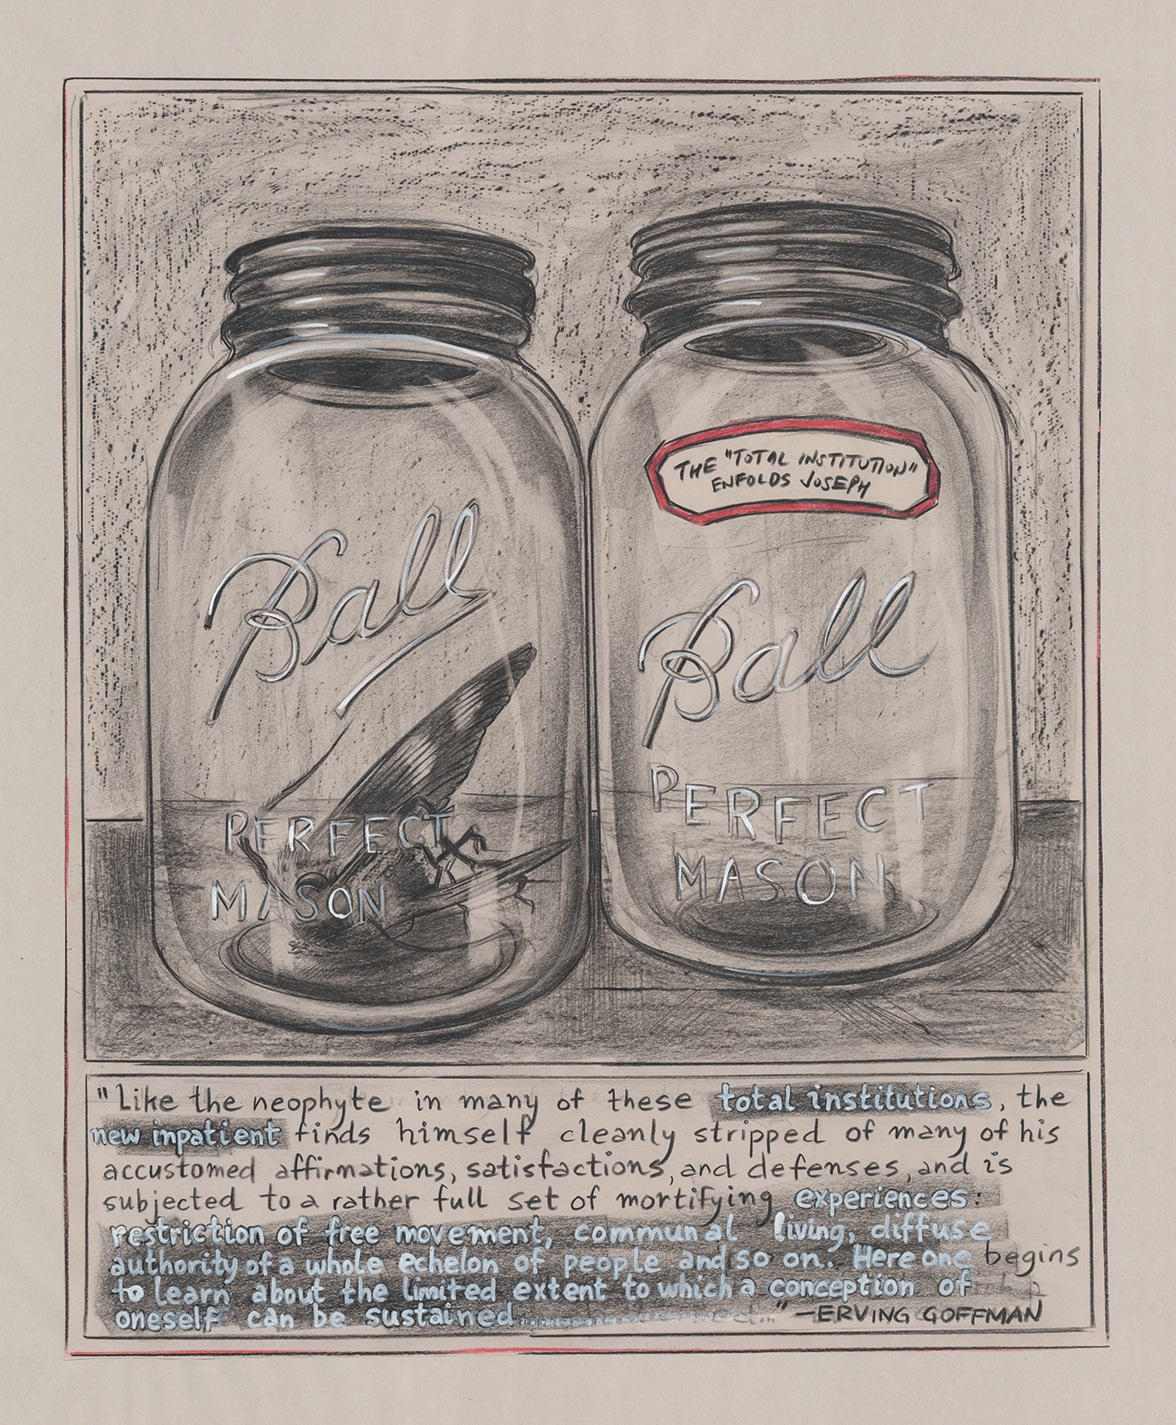 Ball
PERFECT
MASON
THE "TOTAL INSTITUTION"
ENFOLDS JOSEPH
Ball
PERFECT
MASON
"Like the neophyte in many of these total institutions, the
new inpatient finds himself cleanly stripped of many of his
accustomed affirmations, satisfactions, and defenses, and is
subjected to a rather full set of mortifying experiences:
restriction of free movement, communal living, diffuse
authority of a whole echelon of people and so on. Here one begins
to learn about the limited extent to which a conception of
oneself can be sustained ..." —ERVING GOFFMAN